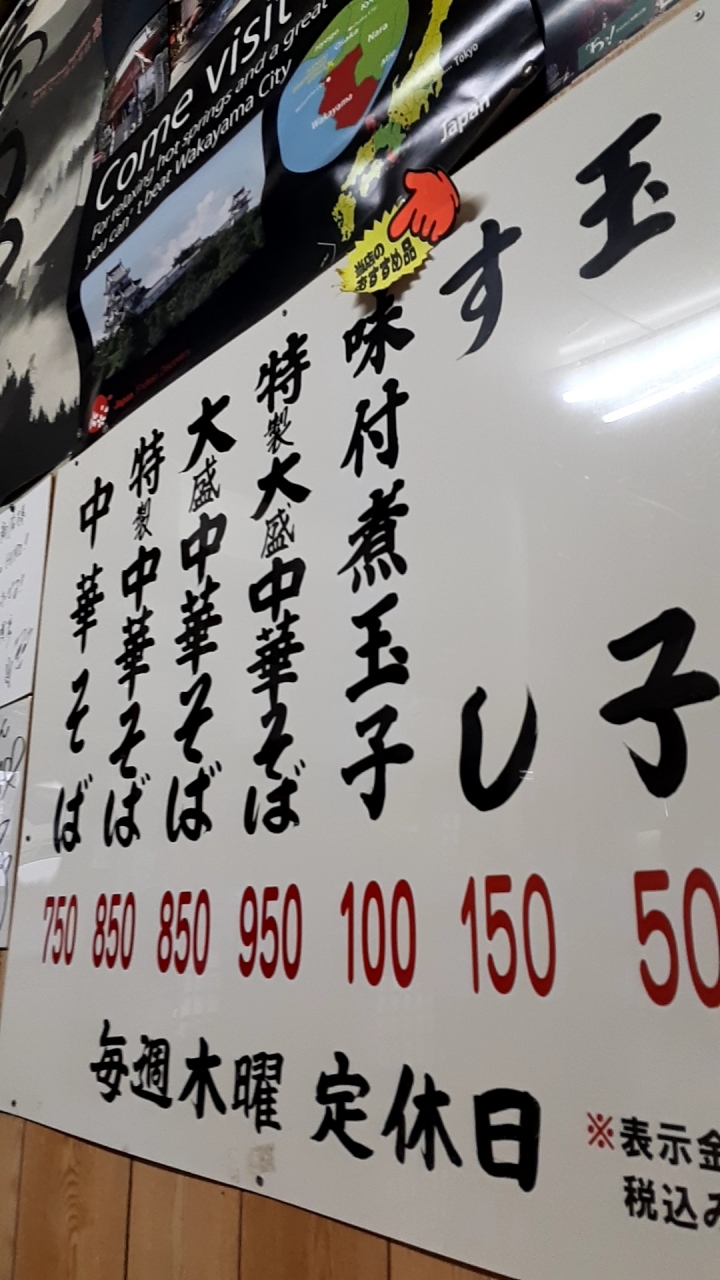 Come visit
For relaxing hot springs and a great
you can't beat Wakayama City
Osaka
Nara
Wakayama
Tokyo
Japan
Japan. Endless Discovery.
当店の
おすすめ品
玉子
50
すし
150
味付煮玉子
100
特製大盛中華そば
950
大盛中華そば
850
特製中華そば
850
中華そば
750
毎週木曜 定休日
※表示金
税込み